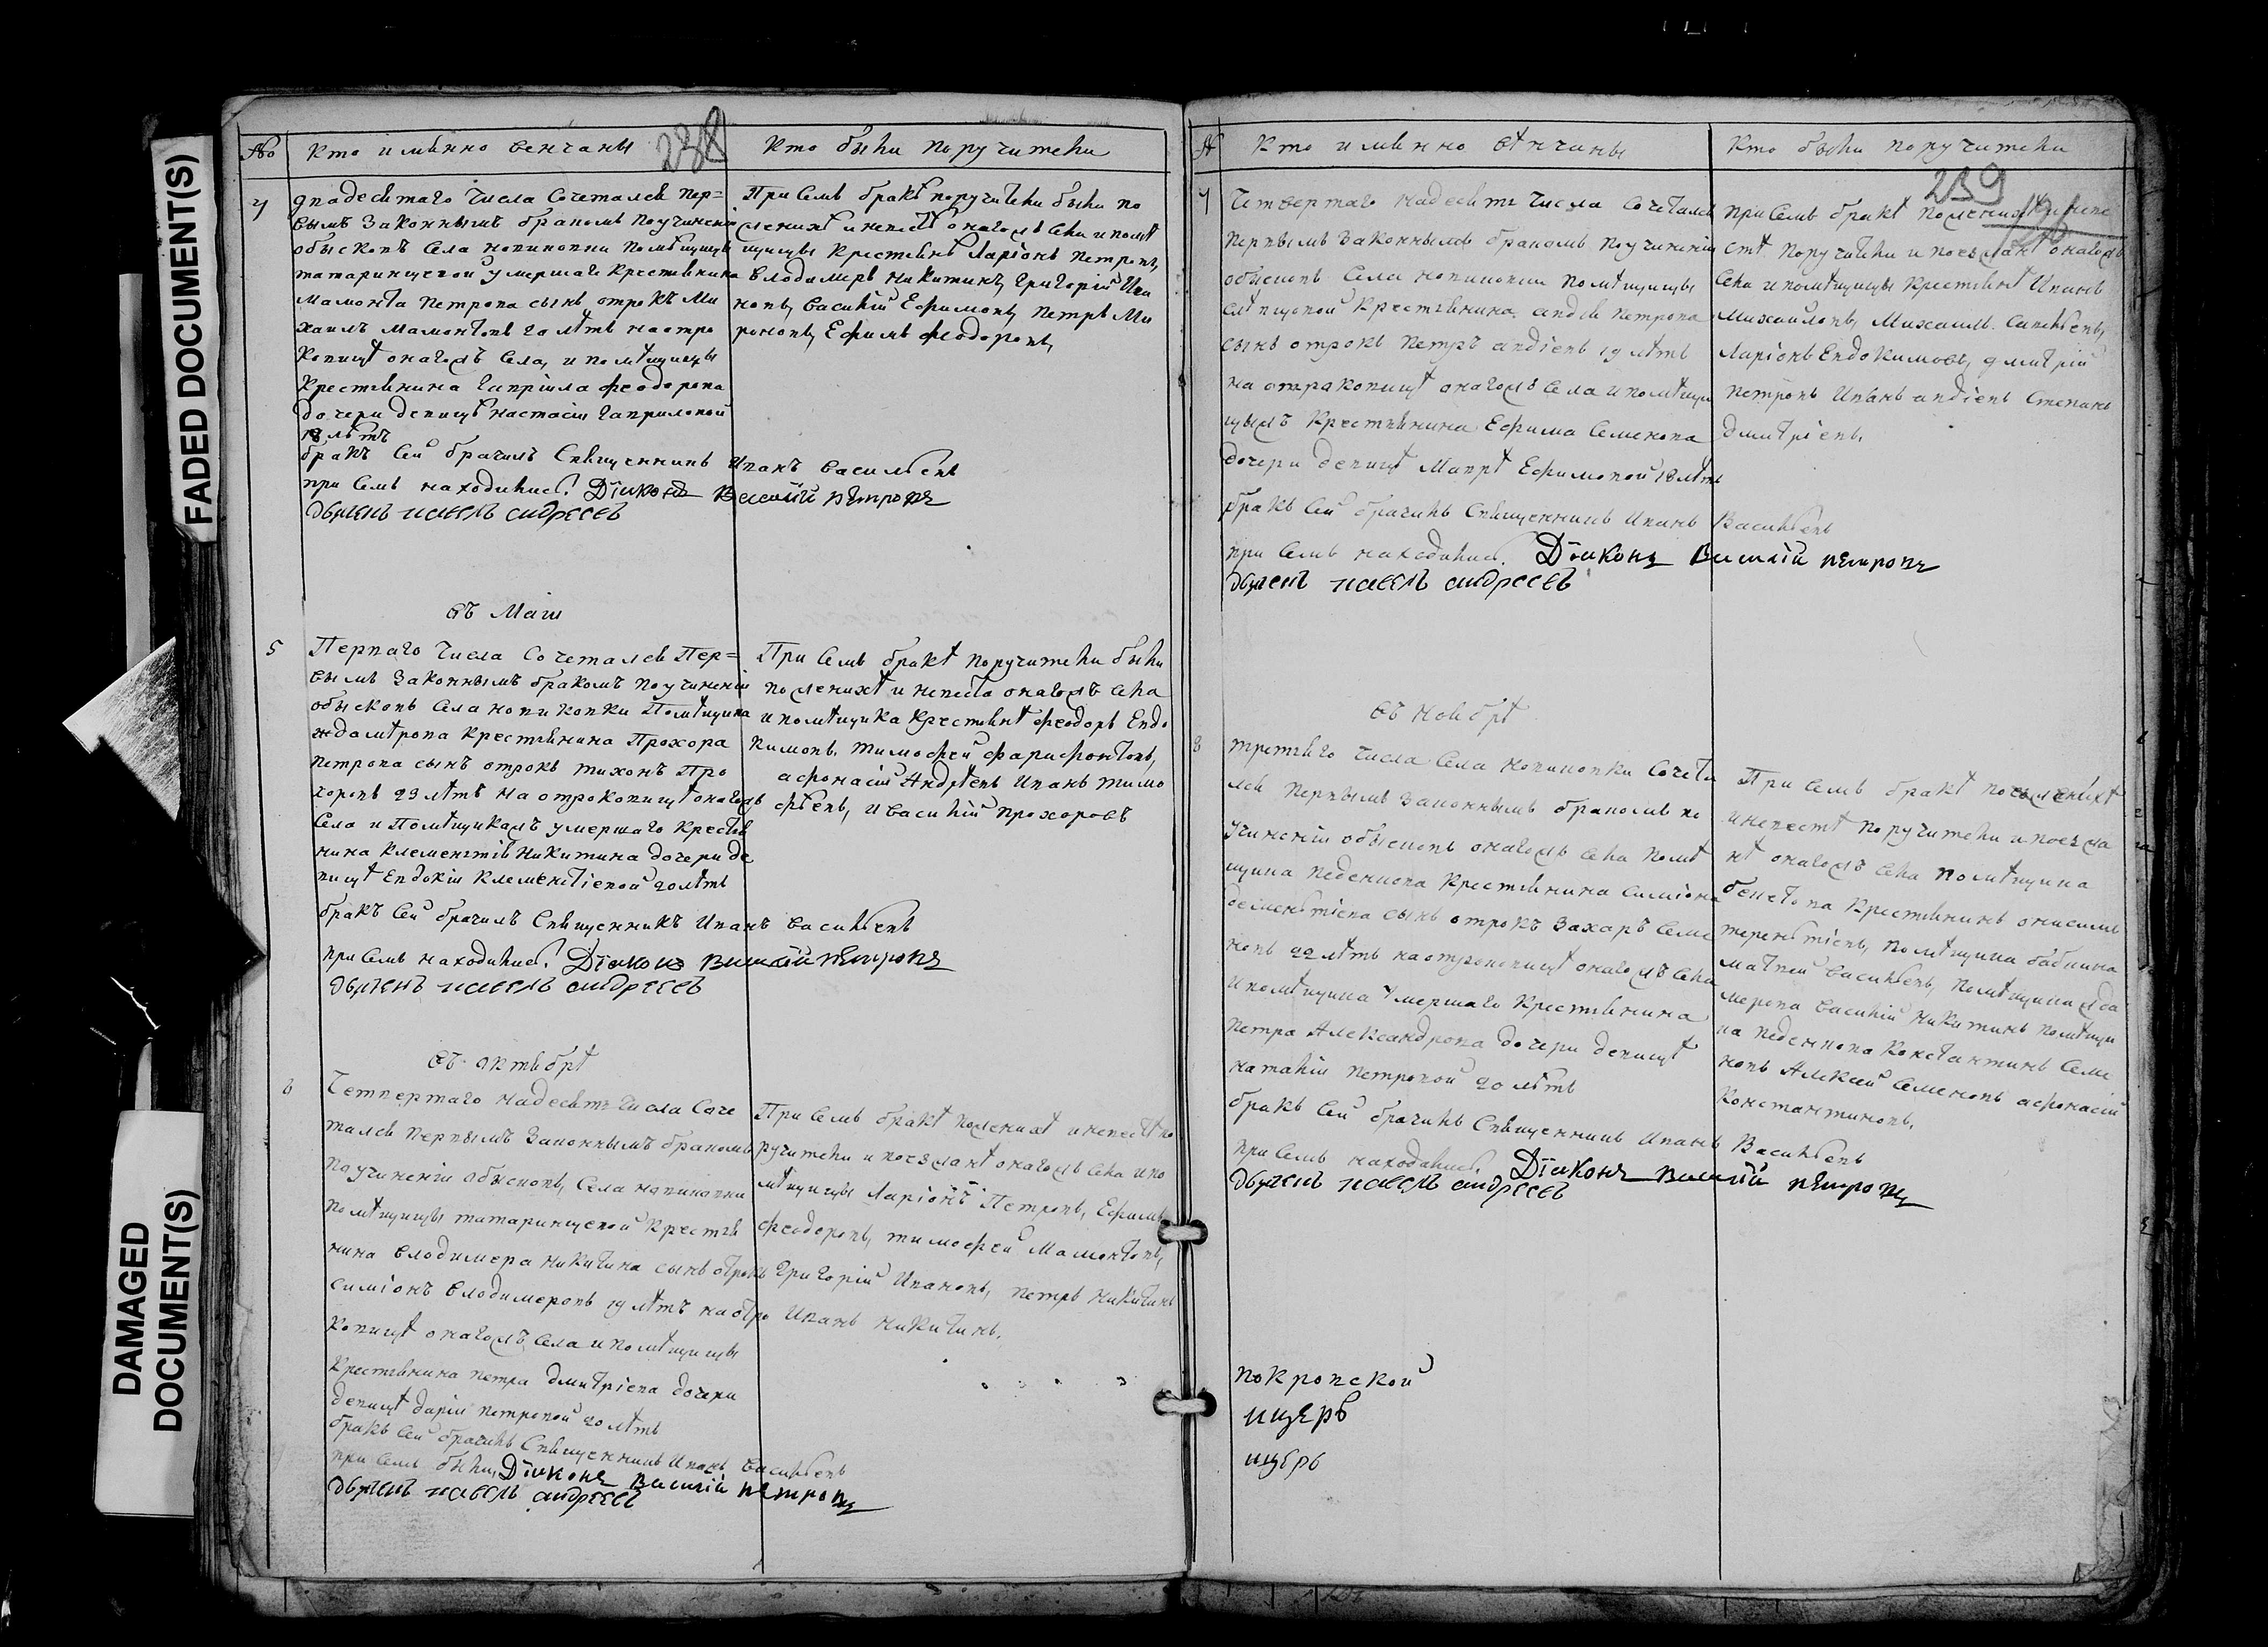 FADED DOCUMENT(S)
DAMAGED
DOCUMENT(S)
№ Кто имѣнно венчаны
238
Кто были поручители
4
двадесятаго числа сочетался пер=
вымъ законнымъ бракомъ поучинені
обысковъ села новиковки помѣщицы
татаринцевой умершаго крестьянина
Мамонта Петрова сынъ отрокъ Ми
хаилъ Мамонтовъ 20 лѣтъ на отро
ковицѣ онагожъ села, и помѣщицы
крестьянина Гавріила Феодорова
дочери девицѣ настасіи Гавриловой
18 лѣтъ
бракъ сей брачилъ священникъ Иванъ Васильевъ
при семъ находились: Діаконъ Василій Петровъ
дьячекъ павелъ андреевъ
При семъ бракѣ поручители были по
женихѣ и невѣстѣ онагожъ села и помѣ
щицы крестьянѣ Ларіонъ Петровъ,
Владимеръ Никитинъ, Григорій Ива
новъ, Василій Ефимовъ, Петръ Ми
роновъ, Ефимъ Феодоровъ,
въ Маіи
5
Перваго числа сочетался Пер=
вымъ законнымъ бракомъ поучиненіи
обысковъ села новиковки Помѣщика
ждамѣрова крестьянина Прохора
Петрова сынъ отрокъ Тихонъ Про
хоровъ 23 лѣтъ на отроковицѣ онагожъ
села и Помѣщикажъ умершаго крестья
нина Клементія Никитина дочери де
вицѣ Евдокіи Клементіевой 20 лѣтъ
бракъ сей брачилъ Священникъ Иванъ Васильевъ
при семъ находились: Діаконъ Василій Петровъ
дьячекъ павелъ андреевъ
При семъ бракѣ поручители были
по женихѣ и невѣстѣ онагожъ села
и помѣщика крестьянѣ Феодоръ Евдо
кимовъ, Тимофей Фарафонтовъ,
афонасій Андрѣевъ Иванъ Тимо
фѣевъ, и Василій Прохоровъ
въ октябрѣ
6
Четвертаго надесять числа Соче
тался первымъ законнымъ бракомъ
поучиненіи обысковъ, села новиковки
помѣщицы татаринцевой крестья
нина Владимера Никитина сынъ отрокъ
Симіонъ Владимеровъ 19 лѣтъ на отро
ковицѣ онагожъ села и помѣщицы
крестьянина Петра Дмитріева дочери
девицѣ даріи Петровой 20 лѣтъ
бракъ сей брачилъ Священникъ Иванъ Васильевъ
при семъ были, Діаконъ Василій Петровъ
дьячекъ павелъ андреевъ
При семъ бракѣ по женихѣ и невѣстѣ по
ручители и поезжанѣ онагожъ села и по
мѣщицы Ларіонъ Петровъ, Ефимъ
Феодоровъ, Тимофей Мамонтовъ,
Григорій Ивановъ, Петръ Никитинъ
Иванъ Никитинъ.
№ Кто имянно вѣнчаны
Кто были поручители
239
7
Четвертаго надесять числа сочетался
первымъ законнымъ бракомъ поучиненіи
обысковъ села новиковки помѣщицы
крестьянина андея Петрова
сынъ отрокъ Петръ андіевъ 19 лѣтъ
на отраковицѣ онагожъ села и помѣщи
цыжъ крестьянина Ефима Семенова
дочери девицѣ Маврѣ Ефимовой 18 лѣтъ
бракъ сей брачилъ Священникъ Иванъ Васильевъ
при семъ находились. Діаконъ Василій Петровъ
дьячекъ павелъ андреевъ
при семъ бракѣ по женихѣ и неве
стѣ поручители и поезжанѣ онагожъ
села и помѣщицы крестьянѣ Иванъ
Михайловъ, Михаилъ Савельевъ,
Ларіонъ Евдокимовъ, дмитрій
Петровъ Иванъ андіевъ Степанъ
дмитріевъ,
въ ноябрѣ
8
третьяго числа села новиковки сочета
лся первымъ законнымъ бракомъ по
учиненіи обысковъ онагожъ села помѣ
щика Веденкова крестьянина Симіона
Сементіева сынъ отрокъ Захаръ Семе
новъ 22 лѣтъ на отроковицѣ онагожъ села
и помѣщика умершаго крестьянина
Петра Александрова дочери девицѣ
наталіи Петровой 20 лѣтъ
бракъ сей брачилъ Священникъ Иванъ Васильевъ
при семъ находились. Діаконъ Василій Петровъ
дьячекъ павелъ андреевъ
При семъ бракѣ по женихѣ
и невестѣ поручители и поезжа
нѣ онагожъ села помѣщика
бекетова крестьянинъ онисимъ
терентіевъ, помѣщика бабкина
матвей Васильевъ, помѣщика жда
мерова Василій Никитинъ помѣщи
ка Веденкова Константинъ Семе
новъ Алексей Семеновъ афонасій
Константиновъ.
покровской
ицерь
ицерь